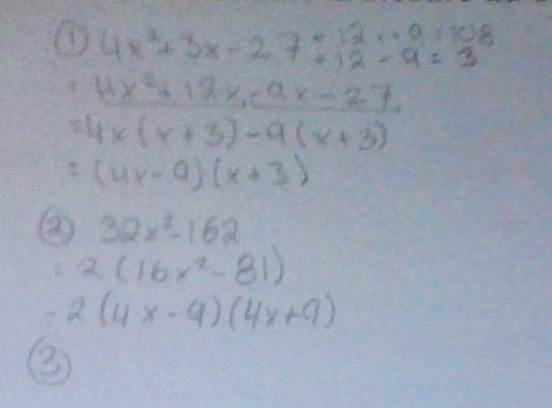 ① 4x²+3x-27 = 12 × -9 = 108
= 12 - 9 = 3
= 4x²+12x-9x-27
= 4x(x+3)-9(x+3)
= (4x-9)(x+3)
② 32x²-162
= 2(16x²-81)
= 2(4x-9)(4x+9)
③